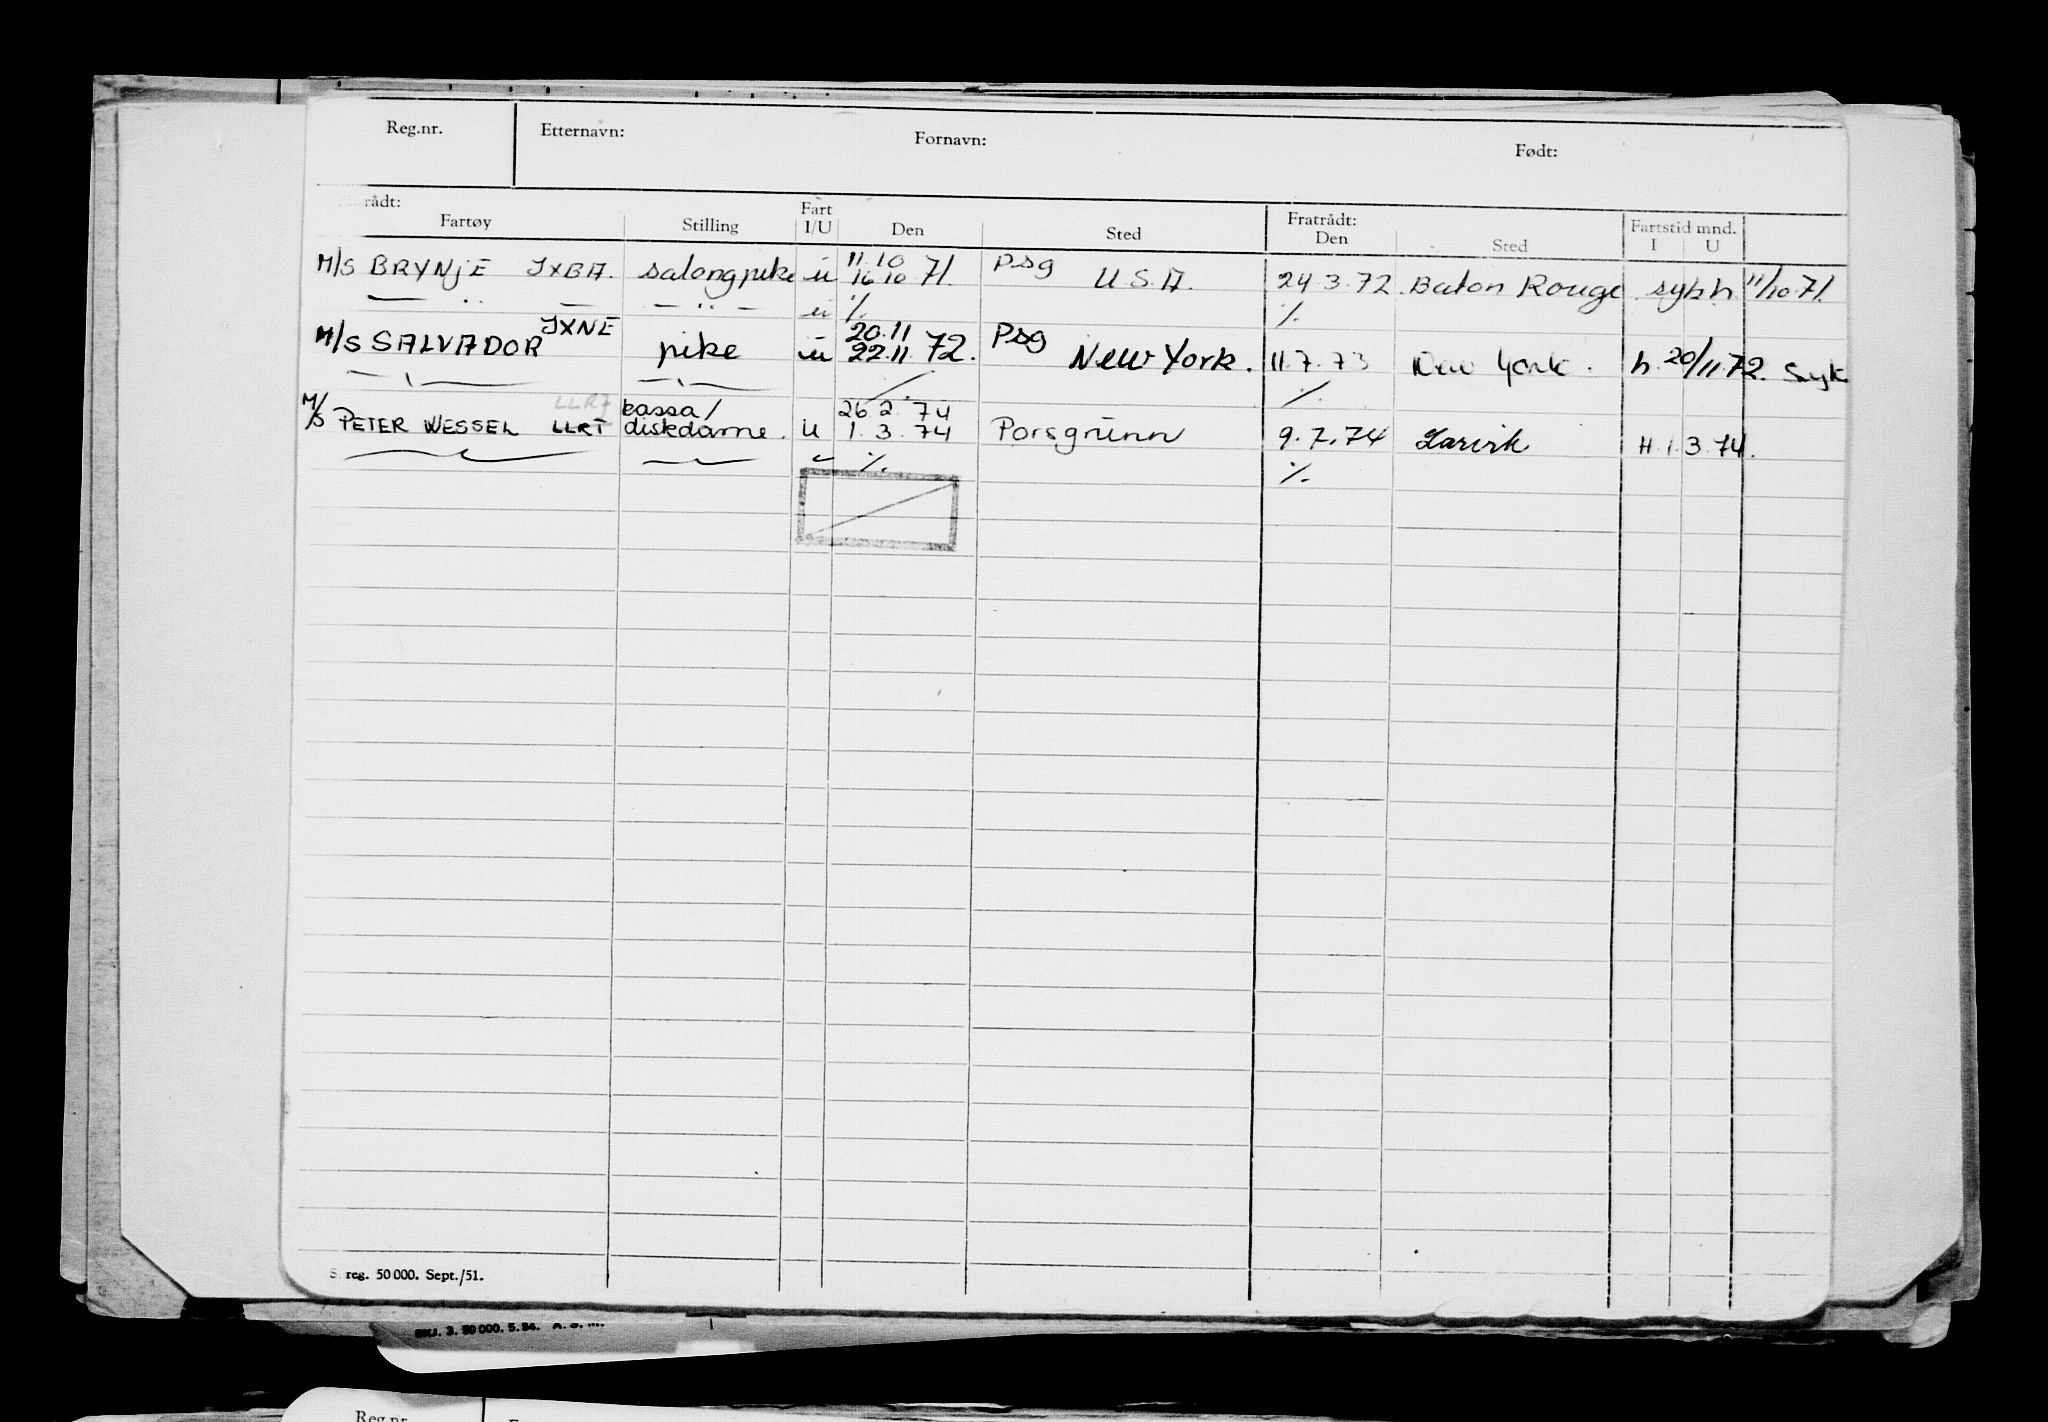 Reg.nr. Etternavn: Fornavn: Født:
rådt: Fratrådt:
Fartøy Stilling Fart I/U Den Sted Den Sted Fartstid mnd. I U
11.10 Psg
M/S BRYNJE JXBA. salongpike u 16.10 71. U.S.A. 24.3.72. Baton Rouge sykh 11/10.71.
— " — — " — u ./. ./.
JXNE 20.11 Psg
M/S SALVADOR pike u 22.11 72. New York. 11.7.73 New York. h. 20/11.72. Syk
./.
LLRT kassa/ 26.2.74
M/S PETER WESSEL LLRT diskdame. u 1.3.74 Porsgrunn 9.7.74 Larvik H.1.3.74.
./. ./.
S. reg. 50 000. Sept./51.
3. 50 000. 5. 54.
Reg.nr.